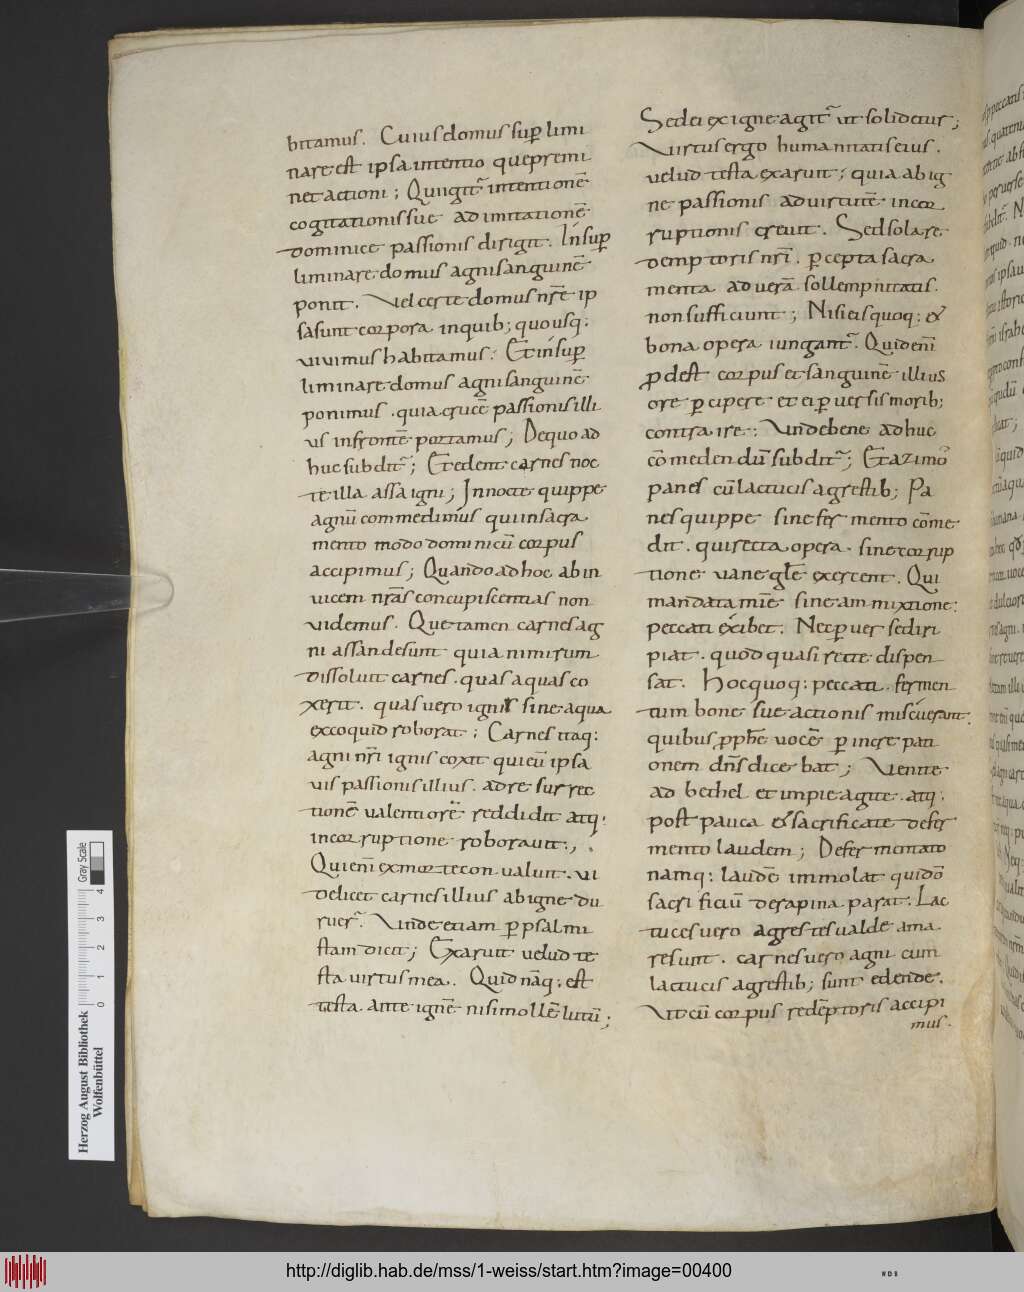 bitamus. Cuius domus sup̄ limi
nare est ipsa intentio que premi
net actioni; Qui igit̄ intentionē
cogitationis suę ad imitationē
dominicę passionis dirigit. In sup̄
liminare domus agni sanguinē
ponit. Vel certe domus nr̄ę ip
sa sunt corpora in quib; quo usq:
vivimus habitamus. Et in sup̄
liminare domus agni sanguinē
ponimus. quia crucē passionis illi
us in fronte portamus; De quo ad
huc subdit̄; Et edent carnes noc
te illa assa igni; In nocte quippe
agnū commedimus qui in sacra
mento modo dominicū corpus
accipimus; Quando adhoc ab in
vicem nr̄as concupiscentias non
videmus. Quę tamen carnes ag
ni assande sunt quia nimirum
dissoluit carnes. quas aqua sco
xerit. quas vero ignis sine aqua
excoquid roborat; Carnes itaq:
agni nr̄i ignis coxit qui eū ipsa
vis passionis illius. ad resurrec
tionē valentiorē reddidit atq:
incorruptione roboravit.,
Qui eni ex morte convaluit. vi
delicet carnes illius ab igne du
ruer̄. Unde etiam p̄ psalmi
stam dicit; Exaruit velud te
sta virtus mea. Quid nāq: est
testa ante ignē nisi mollē lutū;
Sed ei ex igne agit̄ ut solidetur;
Virtus ergo humanitatis eius.
velud testa exaruit; quia ab ig
ne passionis ad virtutē incor
ruptionis crevit. Sed sola re
demptoris nr̄i. p̄cepta sacra
menta ad verā sollempnitatis.
non sufficiunt; Nisi eis quoq: &
bona opera iungant̄. Quid enī
p̄dest corpus et sanguinē illius
ore p̄cipere et ei p̄versis morib;
contra ire: Unde bene adhuc
cōmedendū subdit̄; Et azimos
panes cū lactucis agrestib; Pa
nes quippe sine fermento cōme
dit. qui recta opera. sine corrup
tione vane glę exercent. Qui
mandata mīę sine ammixtione:
peccati exibet. Nec p̄verse diri
piat. quod quasi recte dispen
sat. Hoc quoq: peccati. fermen
tum bonę suę actionis miscuerant.
quibus p̄phę vocē p̄ increpati
onem dn̄s dicebat; Venite
ad bethel et impie agite. atq:
post pauca & sacrificate de fer
mento laudem; De fermentato
namq: laudē immolat qui dō
sacrificiū de rapina parat. Lac
tuces vero agrestes valde ama
re sunt. carnes vero agni cum
lactucis agrestib; sunt edende.
Ut cū corpus redēptoris accipi
mus.
Herzog August Bibliothek
Wolfenbüttel
Gray Scale
0 1 2 3 4
http://diglib.hab.de/mss/1-weiss/start.htm?image=00400